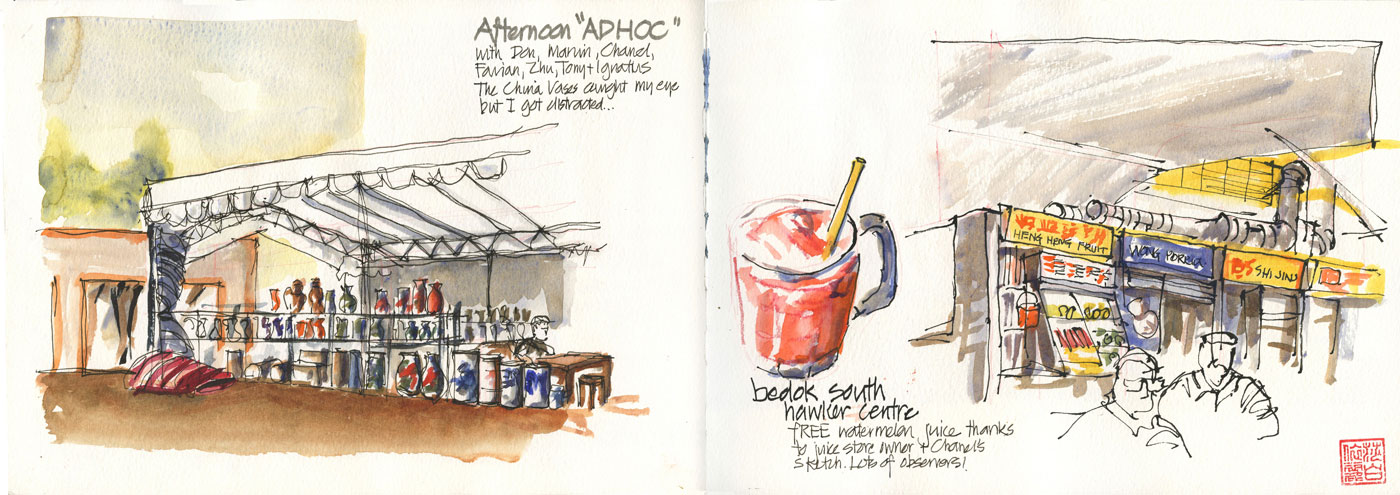 Afternoon "ADHOC"
with Don, Marvin, Chanel,
Favian, Zhu, Tony + Ignatius
The China Vases caught my eye
but I got distracted...
HENG HENG FRUIT
WONG
SHI JIN
bedok south
hawker centre
FREE watermelon juice thanks
to juice store owner + Chanel's
sketch. Lots of observers!